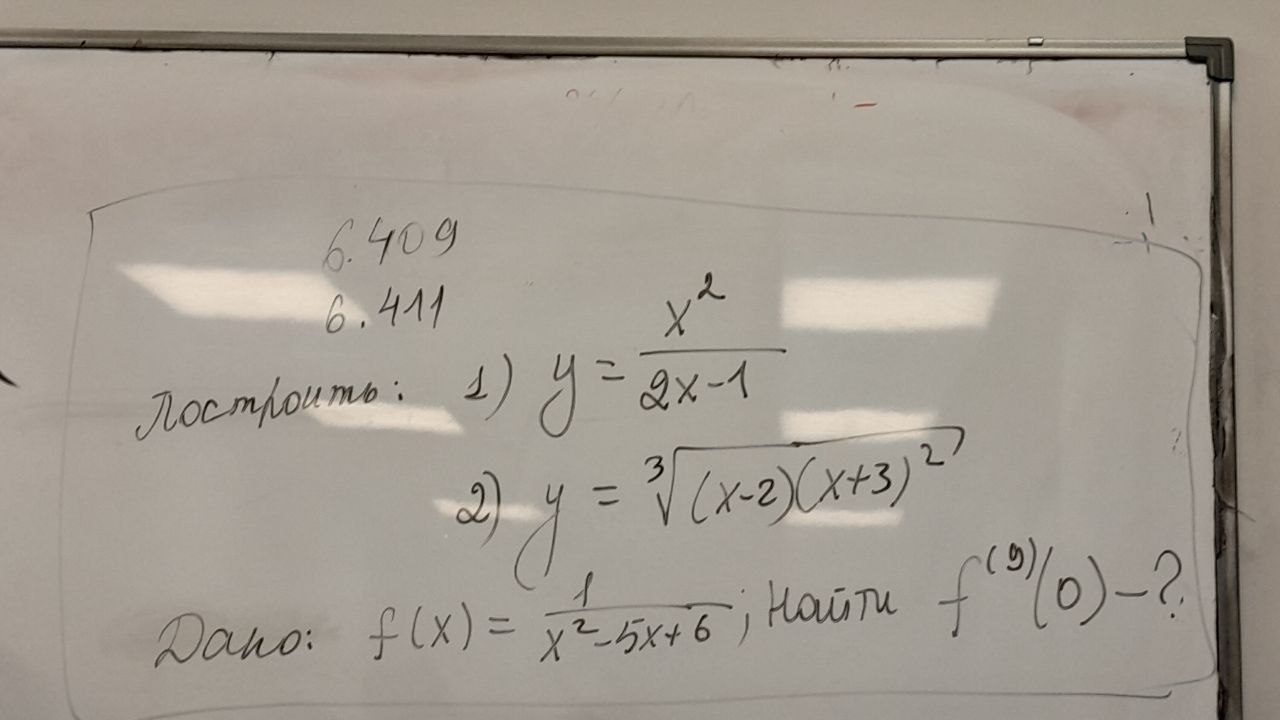 6.409
6.411
Построить: 1) y = x²/(2x-1)
2) y = ∛((x-2)(x+3)²)
Дано: f(x) = 1/(x²-5x+6); Найти f⁽⁹⁾(0) - ?